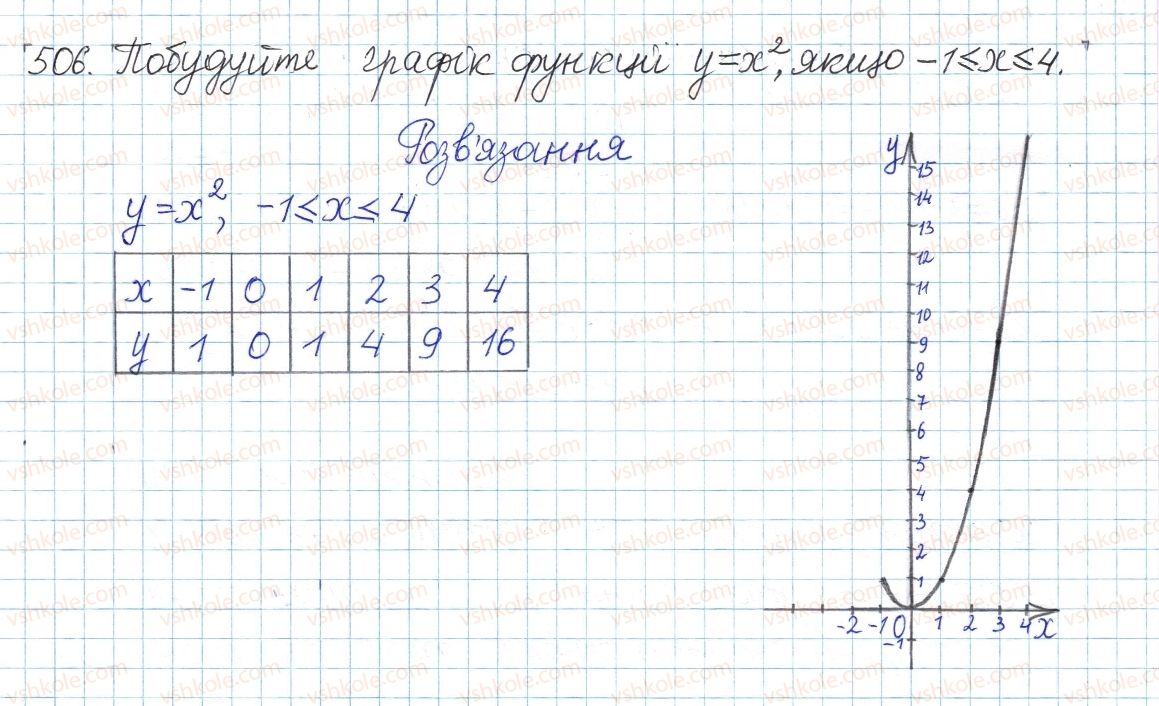 506. Побудуйте графік функції y=x², якщо -1≤x≤4.
Розв'язання
y=x², -1≤x≤4
x -1 0 1 2 3 4
y 1 0 1 4 9 16
y
15
14
13
12
11
10
9
8
7
6
5
4
3
2
1
-2 -1 0 1 2 3 4 x
-1
vshkole.com